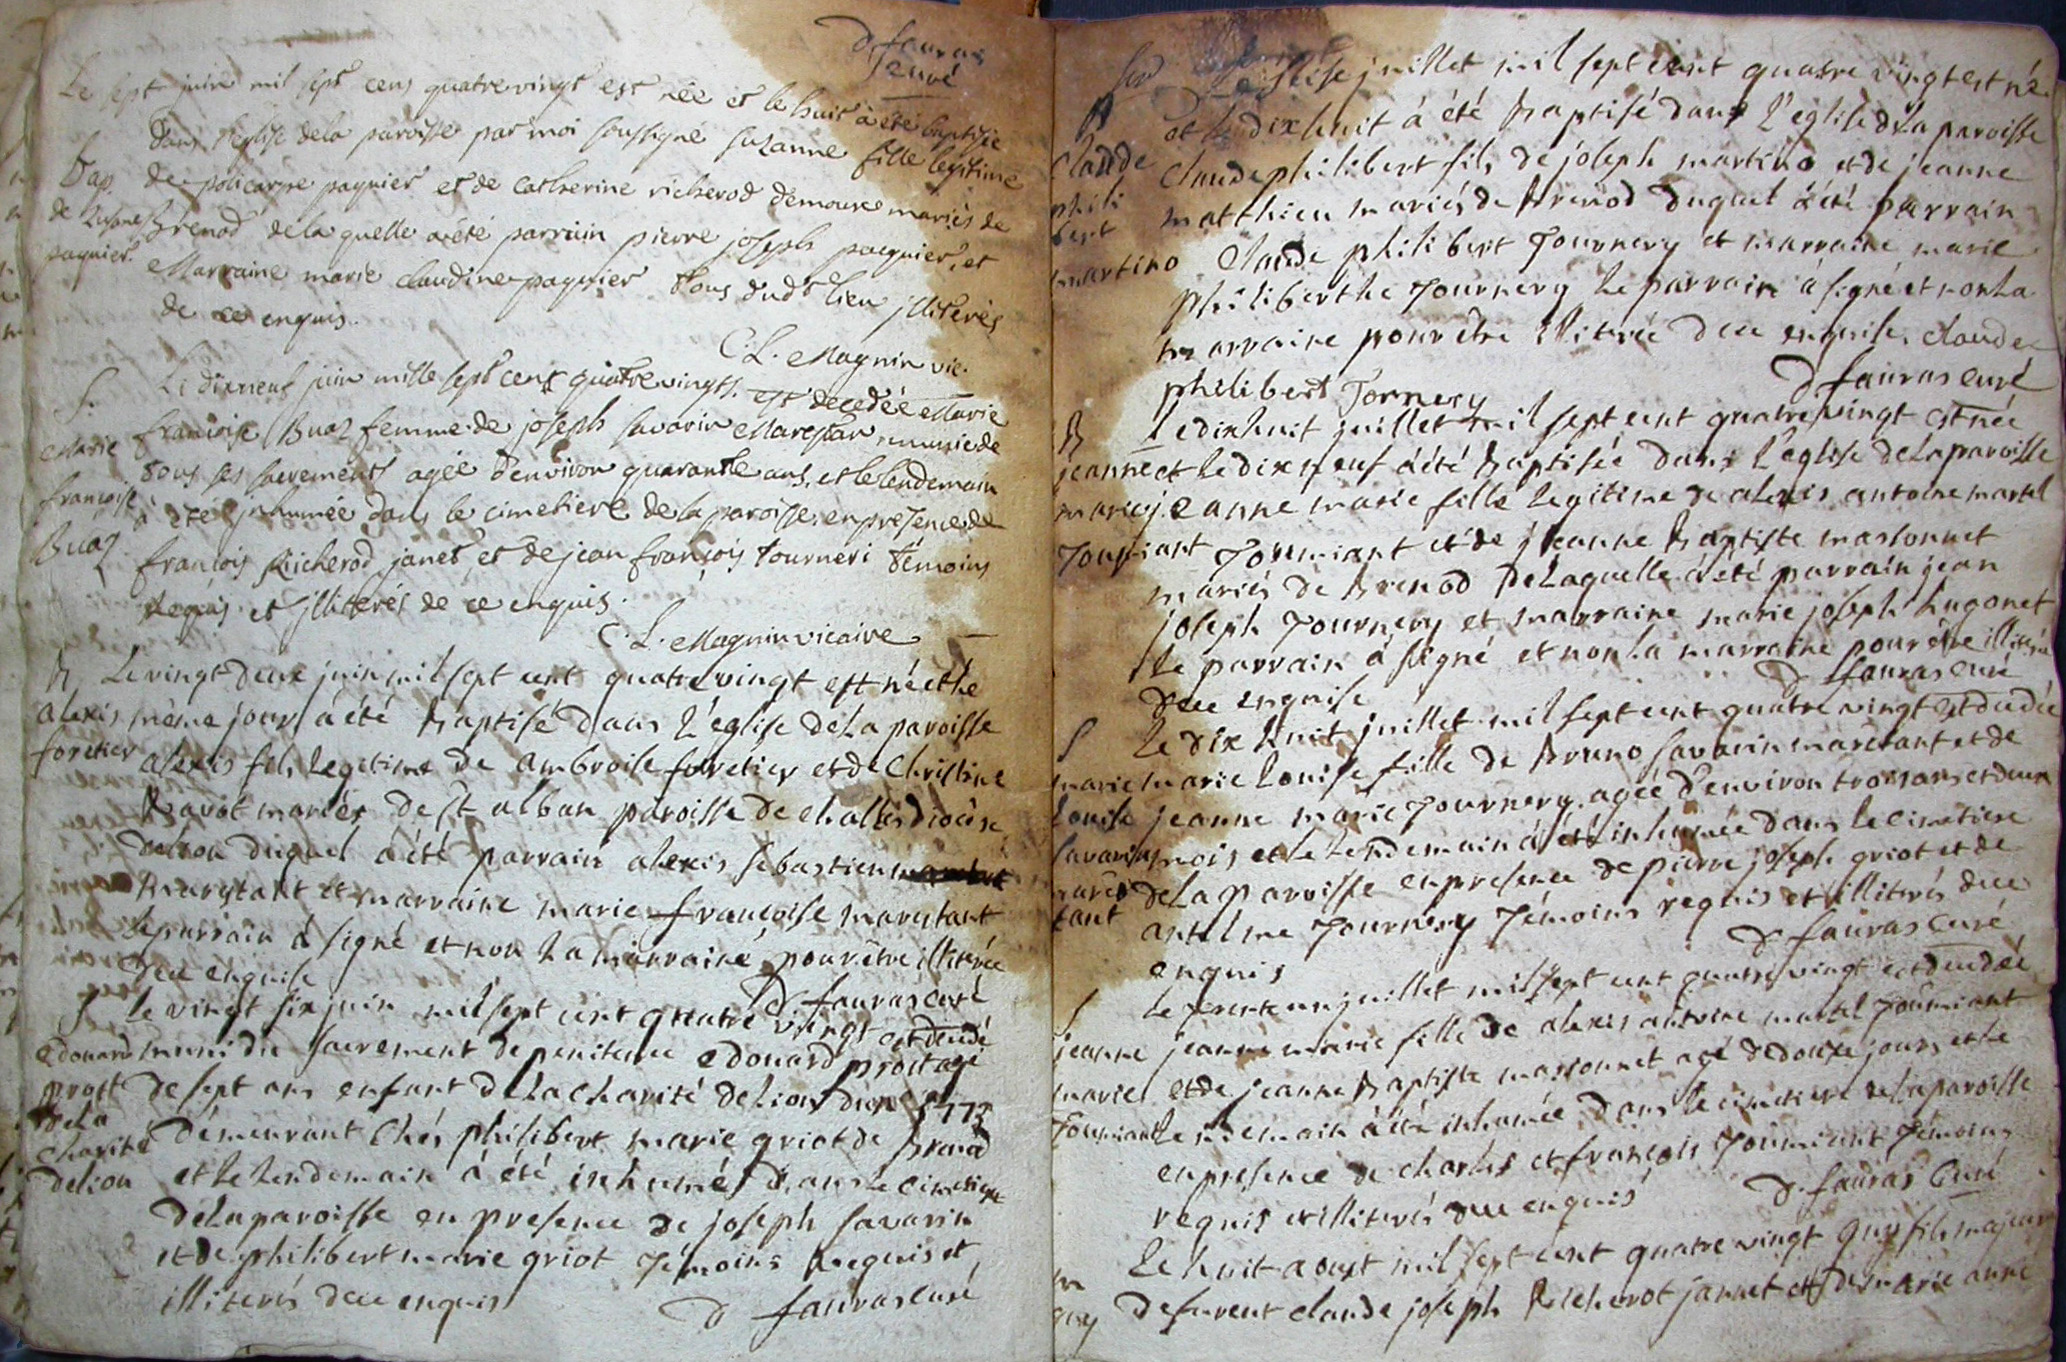 D fauras
curé
Le sept juin mil sept cens quatre vingt est née et le huit à été baptisée
dans l'eglise de la paroisse par moi soussigné suzanne fille legitime
Bap. de policarpe paquier et de catherine richerod demoure mariés de
de suzanne Brenod de la quelle a été parrain pierre joseph paquier, et
paquier. Marraine marie claudine paquier tous dudt lieu jlliterés
de ce enquis.
C. L. Magnin vic.
S. Le dixneuf juin mille sept cent quatre vingts. est decedée Marie
Marie francoise Buaz femme de joseph savarin Marestan, munie de
tous ses sacrements agée d'environ quarante ans, et le lendemain
francoise a été jnhumée dans le cimetiere de la paroisse, en presence de
Buaz francois Richerod janet, et de jean françois tourneri témoins
Requis et jlliterés de ce enquis.
C. L. Magnin vicaire
B Le vingt deux juin mil sept cent quatre vingt est né et le
alexis même jour à été Baptisé dans l'eglise de La paroisse
foretier alexis fils legitime de ambroise foretier et de Christine
Ravot mariés de st alban paroisse de challes diocèse
de lion duquel a été parrain alexis sebastien
marestant et marraine marie francoise marestant
le parrain à signé et non la marraine pour être illiterée
de ce enquise
D fauras curé
S le vingt six juin mil sept cent quatre vingt est decedé
edouard muni du sacrement de penitence edouard prost agé
prost de sept ans enfant de La charité de lion du n° 1773
de La
charité démeurant chés philibert marie griot de Brenod
de lion et le lendemain à été inhumé dans le cimetiere
de la paroisse en presence de joseph savarin
et de philibert marie griot témoins Requis et
illiterés de ce enquis
D fauras curé
Le seise juillet mil sept cent quatre vingt est né
B et le dix huit à été Baptisé dans l'eglise de la paroisse
claude claude philibert fils de joseph martino et de jeanne
phili
bert matthieu mariés de Brenod duquel à été parrain
martino Claude philibert Tournery et marraine marie
philiberthe Tournery le parrain à signé et non la
marraine pour être illiterée de ce enquise, claude
philibert Tornery
D fauras curé
B Le dix huit juillet mil sept cent quatre vingt est née
jeanne et le dix neuf à été Baptisée dans l'eglise de la paroisse
marie jeanne marie fille legitime de alexis antoine martel
Toumiant Toumiant et de jeanne Baptiste massonnet
mariés de Brenod de Laquelle à été parrain jean
joseph Tournery et marraine marie joseph hugonet
le parrain à signé et non la marraine pour être illiterée
de ce enquise
D fauras curé
S Le dix huit juillet mil sept cent quatre vingt est decedée
marie marie Louise fille de Bruno savarin marestant et de
Louise jeanne marie Tournery, agée d'environ trois ans et deux
savarin mois et le lendemain à été inhumée dans le cimetiere
mares
tant de La paroisse en presence de pierre joseph griot et de
antelme Tournery Témoins requis et illiterés de ce
enquis
D fauras curé
S Le trente un juillet mil sept cent quatre vingt est decedée
jeanne jeanne marie fille de alexis antoine martel Toumiant
marie et de jeanne Baptiste massonnet agé de douxe jours et le
Toumiant Lendemain à été inhumée dans le cimetiere de la paroisse
en presence de charles et francois Toumiant Témoins
requis et illiterés de ce enquis
D. fauras Curé
M Le huit aoust mil sept cent quatre vingt guy fils majeur
guy de furent claude joseph Richerot jannet et de marie anne